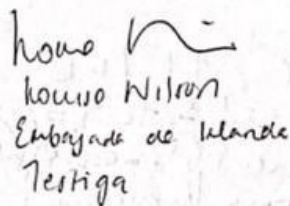 Louise Wilson
Embajada de Irlanda
Testiga